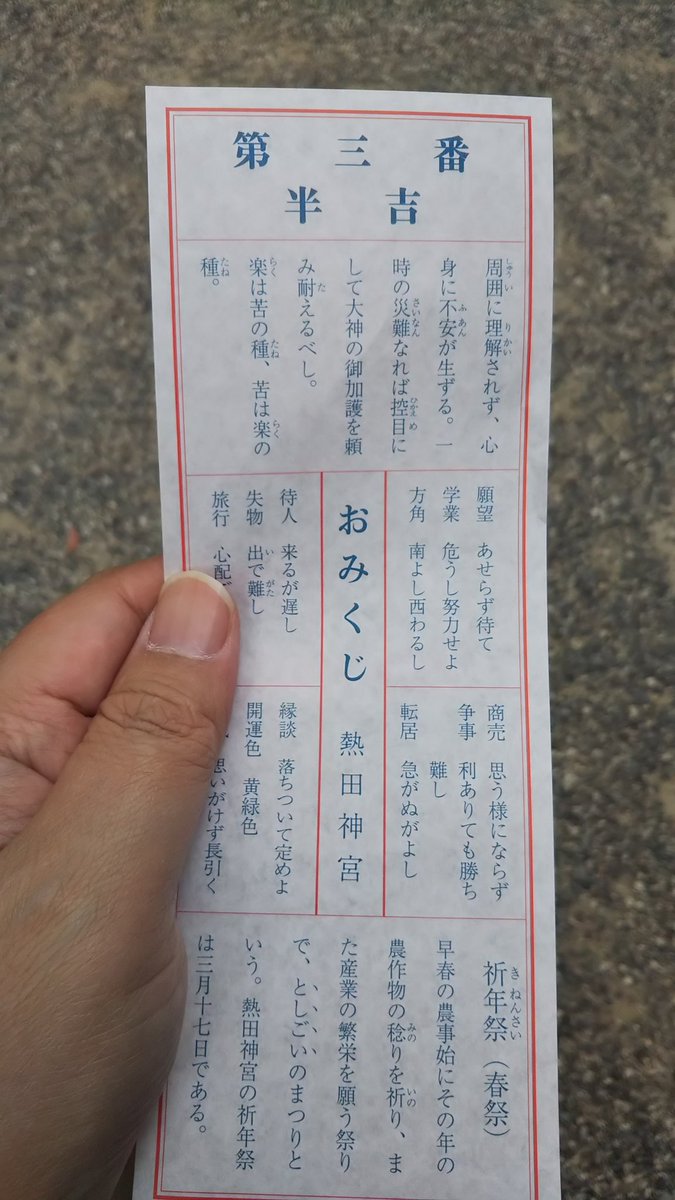 第三番
半吉
周囲に理解されず、心
身に不安が生ずる。一
時の災難なれば控目に
して大神の御加護を頼
み耐えるべし。
楽は苦の種、苦は楽の
種。
願望 あせらず待て
学業 危うし努力せよ
方角 南よし西わるし
商売 思う様にならず
争事 利ありても勝ち
難し
転居 急がぬがよし
おみくじ 熱田神宮
待人 来るが遅し
失物 出で難し
旅行 心配
縁談 落ちついて定めよ
開運色 黄緑色
思いがけず長引く
祈年祭(春祭)
早春の農事始にその年の
農作物の稔りを祈り、ま
た産業の繁栄を願う祭り
で、としごいのまつりと
いう。熱田神宮の祈年祭
は三月十七日である。